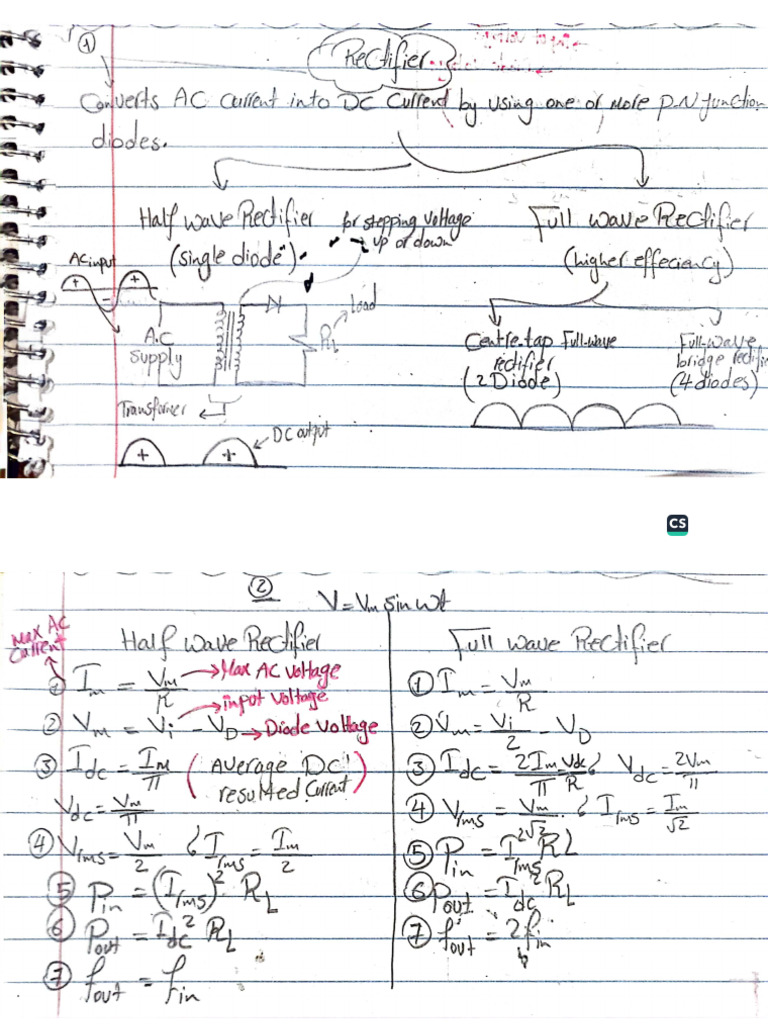 ①
Rectifier
Converts AC Current into DC Current by using one or More P.N junction
diodes.
Half wave Rectifier
(single diode)
for stepping voltage
up or down
Full wave Rectifier
(higher effeciency)
AC input
+
-
+
A.C
Supply
RL
Load
Transformer
DC output
+
+
Centre-tap Full-wave
rectifier
(2 Diode)
Full-wave
bridge rectifie
(4 diodes)
CS
②
V = Vm sin wt
Half wave Rectifier
Max AC
Current
① Im = Vm/R
Max AC voltage
input voltage
② Vm = Vi - VD → Diode Voltage
③ Idc = Im/π (Average DC resulted Current)
Vdc = Vm/π
④ Vrms = Vm/2 & Irms = Im/2
⑤ Pin = (Irms)² RL
⑥ Pout = Idc² RL
⑦ fout = fin
Full wave Rectifier
① Im = Vm/R
② Vm = Vi/2 - VD
③ Idc = 2Im/π = Vdc/R & Vdc = 2Vm/π
④ Vrms = Vm/2√2 & Irms = Im/√2
⑤ Pin = I²rms RL
⑥ Pout = Idc² RL
⑦ fout = 2fin